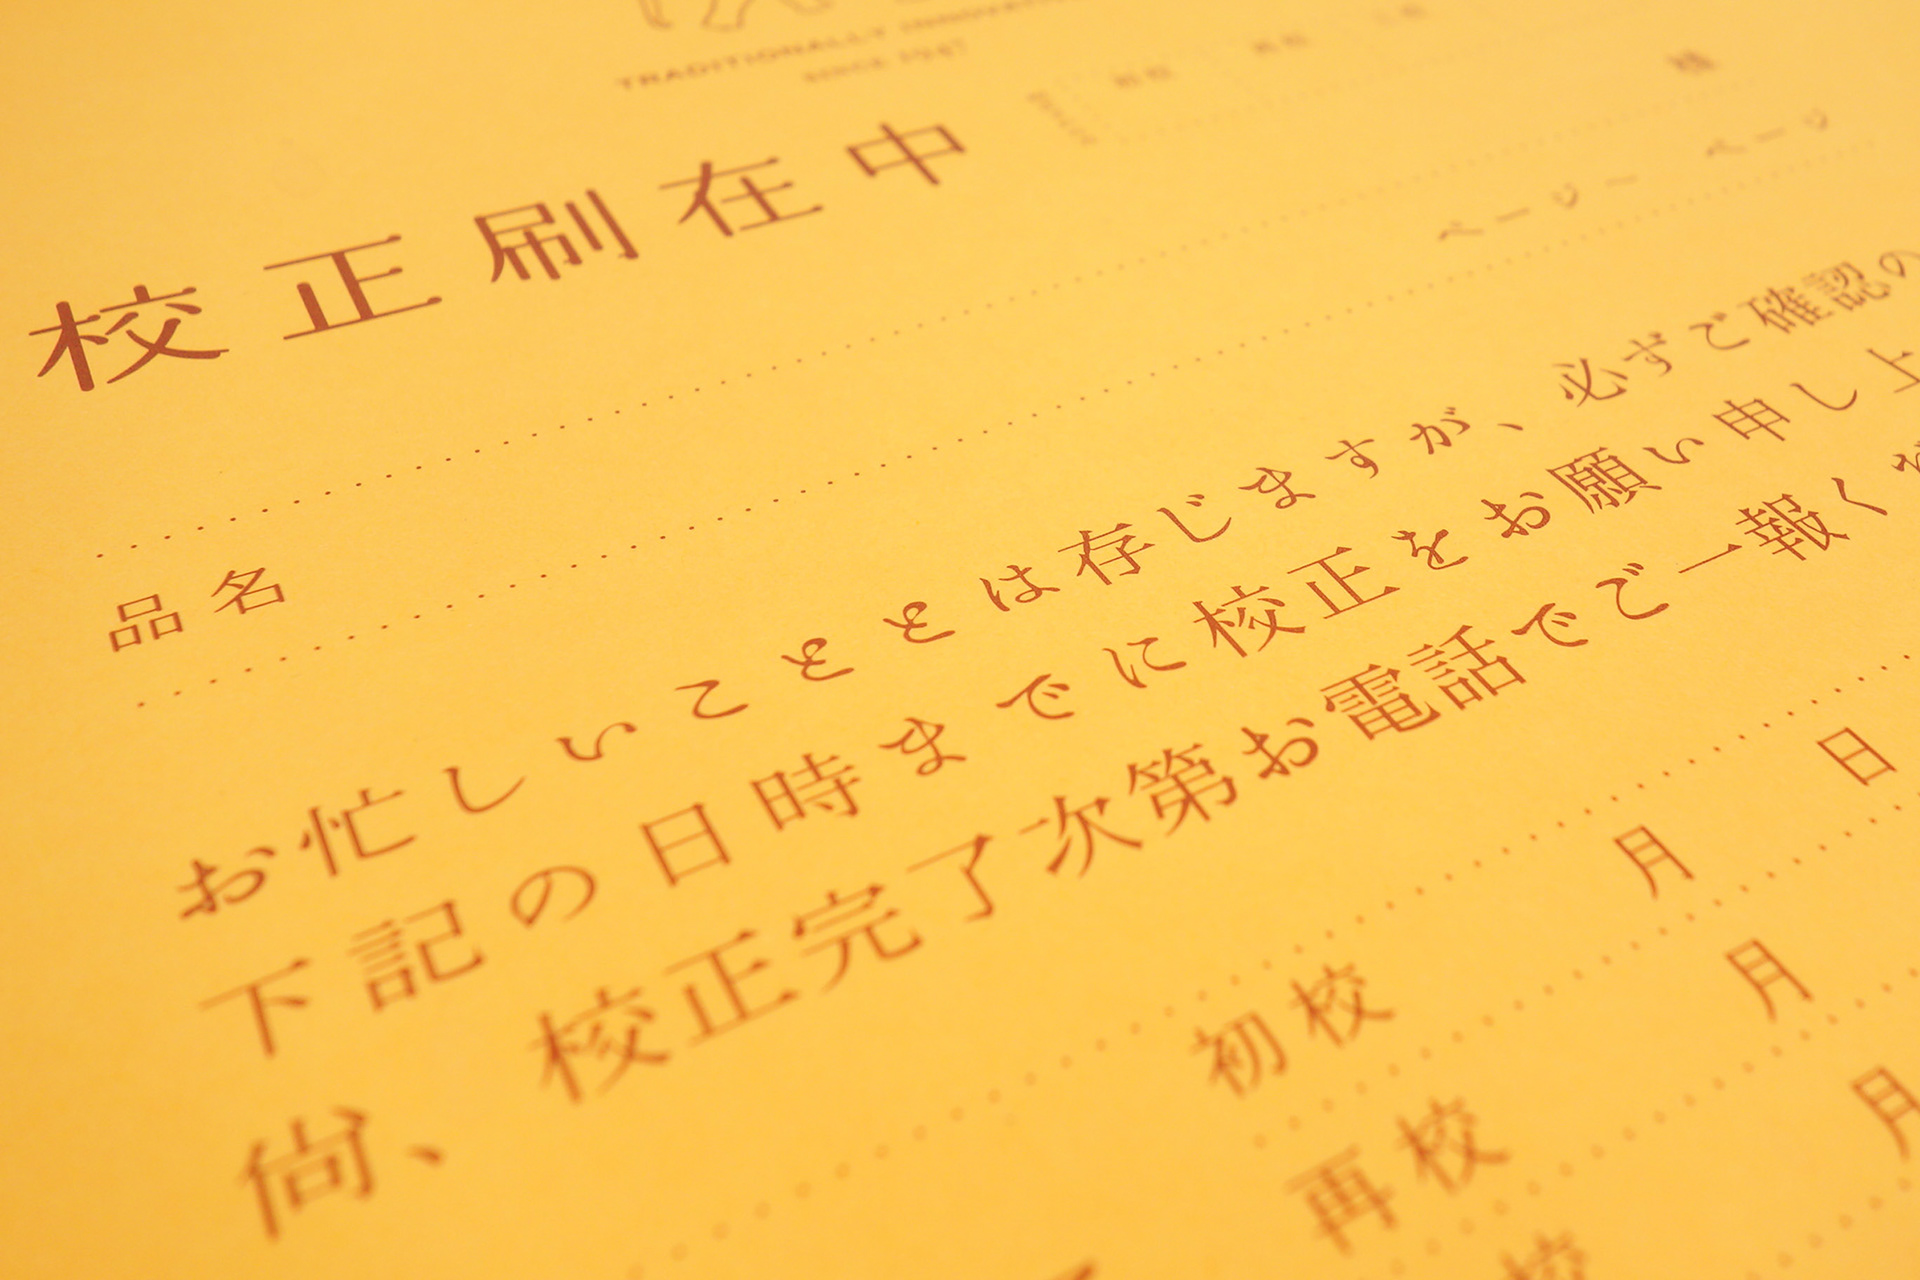 TRADITIONALLY
SINCE 1947
校正刷在中
様
品名
ページ～ ページ
お忙しいこととは存じますが、必ずご確認の
下記の日時までに校正をお願い申し上
尙、校正完了次第お電話でご一報くだ
初校 月 日
再校 月
校 月